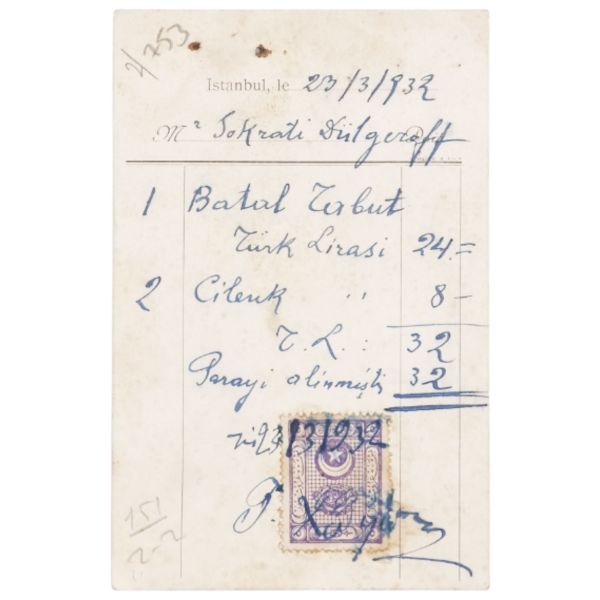 4/753
Istanbul, le 23/3/932
Mr Sokrati Dülgeroff
1 Batal Tabut
Türk Lirasi 24.=
2 Cilenk " 8 –
T.L.: 32
Parayi alinmişti 32
23/3/932
151
2-2